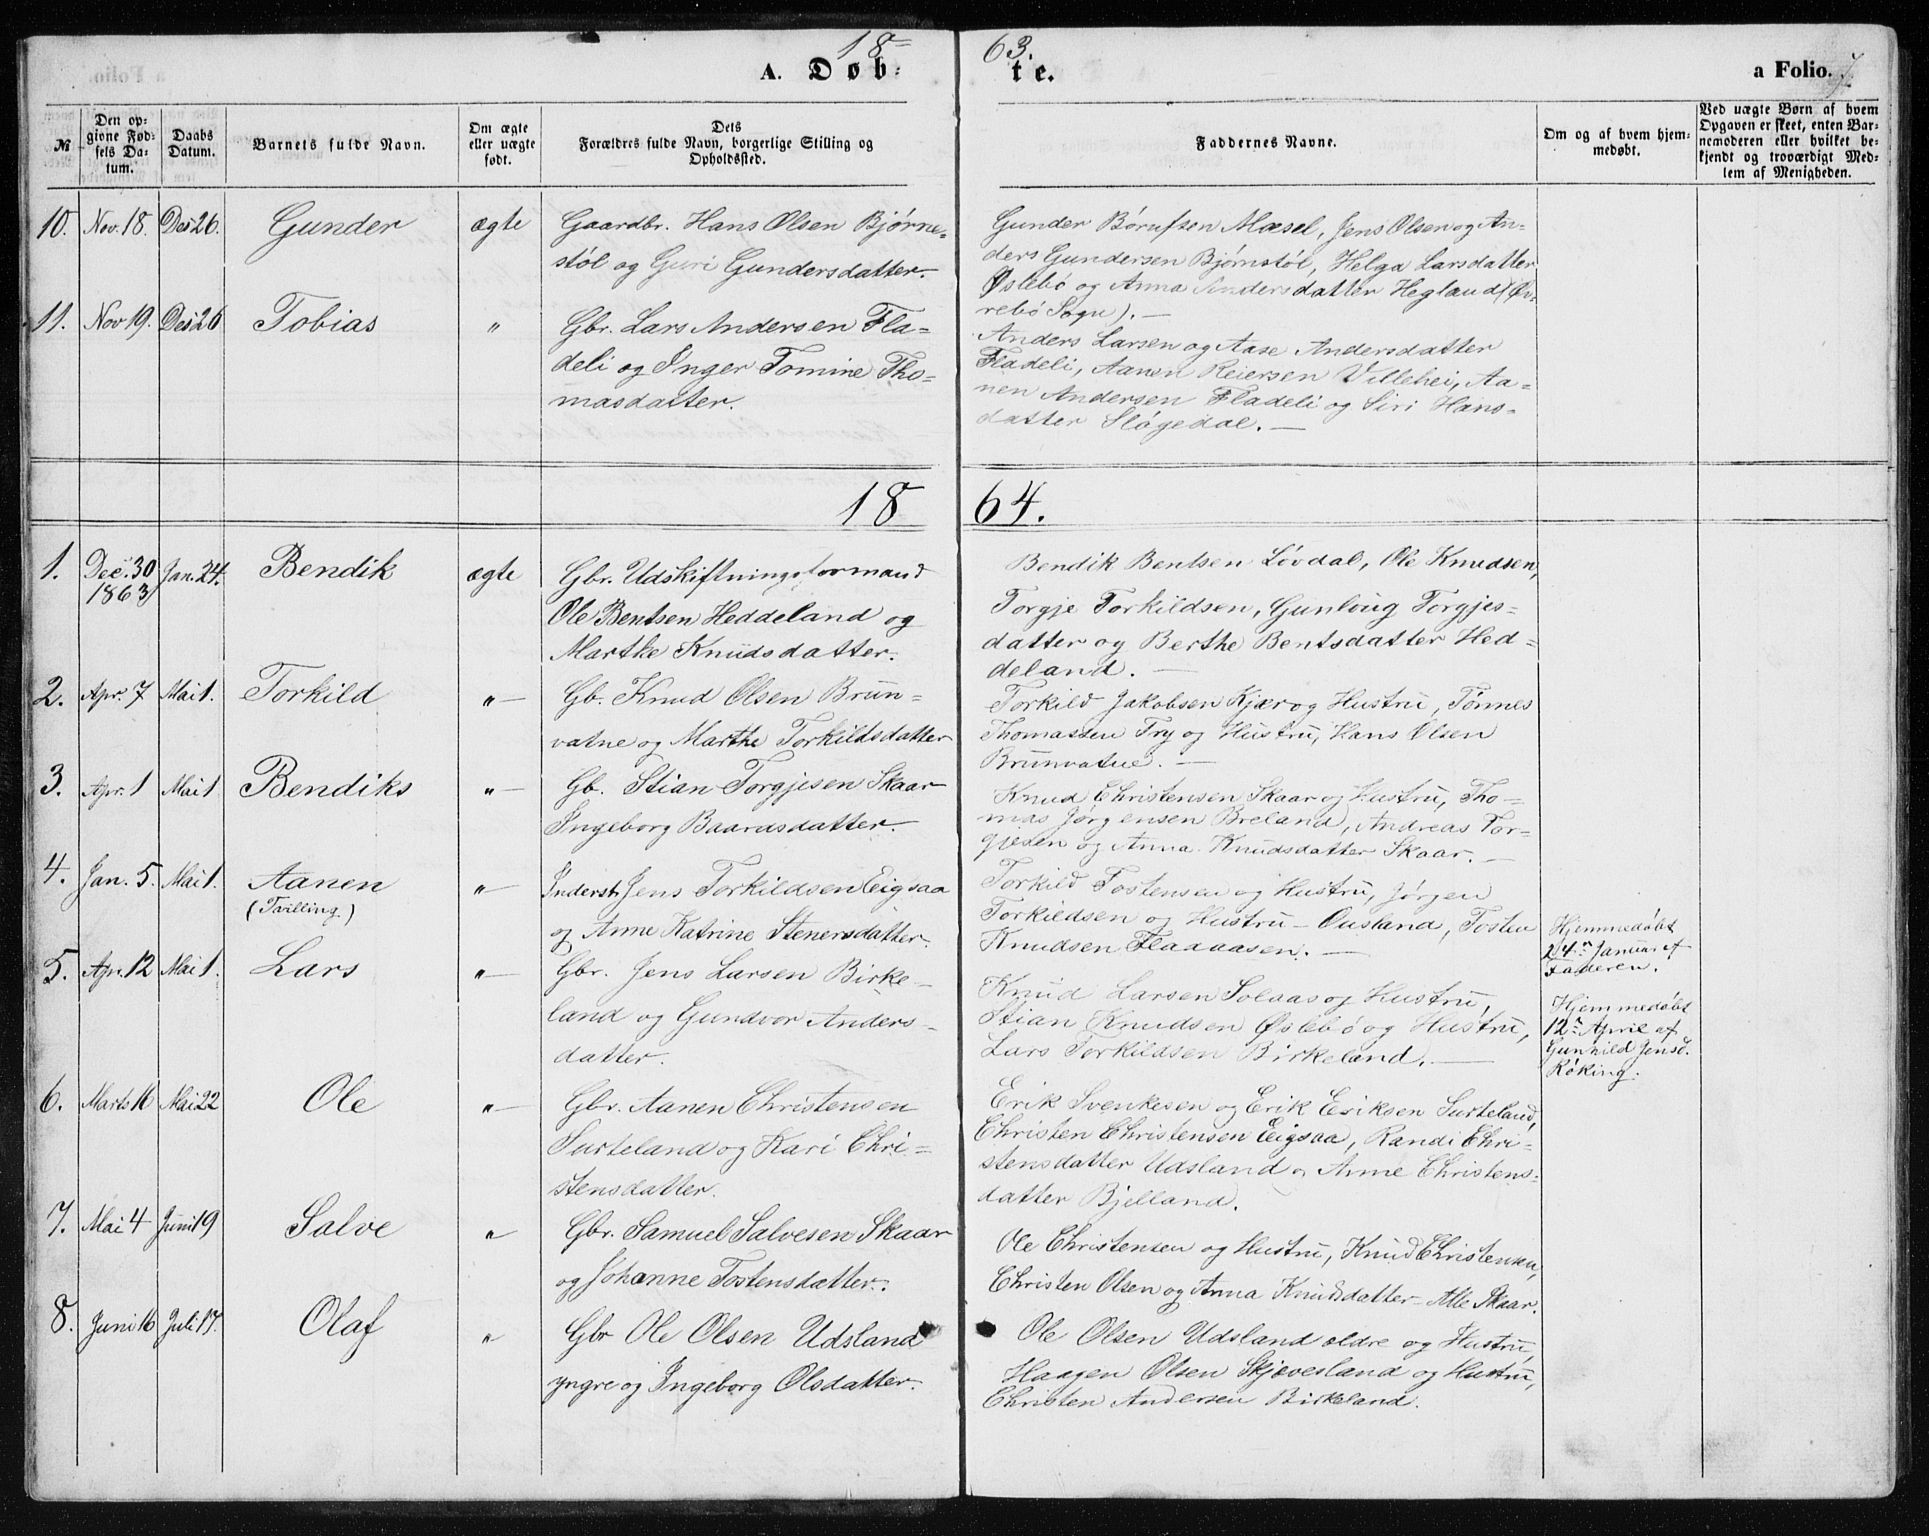 18 63.
A. Døb- te. a Folio. 7.
№
Den op-
givne Fød-
sels Da-
tum.
Daabs
Datum.
Barnets fulde Navn.
Om ægte
eller uægte
født.
Dets
Forældres fulde Navn, borgerlige Stilling og
Opholdssted.
Faddernes Navne.
Om og af hvem hjem-
medøbt.
Ved uægte Børn af hvem
Opgaven er skeet, enten Bar-
nemoderen eller hvilket be-
kjendt og troværdigt Med-
lem af Menigheden.
10. Nov. 18. Des 26. Gunder ægte Gaardbr. Hans Olsen Bjørne-
støl og Guri Gundersdatter.
Gunder Børufsen Mæsel, Jens Olsen og An-
ders Gundersen Bjørnstøl, Helga Larsdatter
Øslebø og Anna Andersdatter Hegland (Øv-
rebø Sogn). —
11. Nov 19. Des 26 Tobias " Gbr. Lars Andersen Fla-
deli og Inger Tomine Tho-
masdatter.
Anders Larsen og Aase Andersdatter
Fladeli, Aanen Reiersen Villehei, Aa-
nen Andersen Fladeli og Siri Hans-
datter Sløgedal. —
18 64.
1. Dec. 30
1863 Jan. 24. Bendik ægte Gbr. Udskiftningsformand
Ole Bentsen Heddeland og
Marthe Knudsdatter.
Bendik Bentsen Løvdal, Ole Knudsen,
Torgje Torkildsen, Gunloug Torgjes-
datter og Berthe Bentsdatter Hed-
deland. —
2. Apr. 7 Mai 1. Torkild " Gb. Knud Olsen Brun-
vatne og Marthe Torkildsdatter
Torkild Jakobsen Kjær og Hustru, Tønnes
Thomassen Try og Hustru, Hans Olsen
Brunvatne. —
3. Apr. 1 Mai 1 Bendiks " Gb. Stian Torgjesen Skaar
Ingeborg Baardsdatter.
Knud Christensen Skaar og Hustru, Tho-
mas Jørgensen Breland, Andreas Tor-
gjesen og Anna Knudsdatter Skaar. —
4. Jan. 5. Mai 1. Aanen
(Tvilling) " Inderst. Jens Torkildsen Eigsaa
og Anne Katrine Stenersdatter.
Torkild Tostensen og Hustru, Jørgen
Torkildsen og Hustru - Ousland, Tosten
Knudsen Flaaaasen. —
Hjemmedøbt
24. Januar af
Faderen.
5. Apr. 12 Mai 1. Lars " Gbr. Jens Larsen Birke-
land og Gundvor Anders-
datter.
Knud Larsen Solaas og Hustru,
Stian Knudsen Øslebø og Hustru,
Lars Torkildsen Birkeland. —
Hjemmedøbt
12. April af
Gunhild Jensd.
Røking.
6. Marts 16 Mai 22 Ole " Gbr. Aanen Christensen
Surteland og Kari Chri-
stensdatter.
Erik Svenkesen og Erik Eriksen Surteland,
Christen Christensen Eigsaa, Randi Chri-
stensdatter Udsland og Anne Christens-
datter Bjelland.
7. Mai 4 Juni 19 Salve " Gbr. Samuel Salvesen Skaar
og Johanne Tostensdatter.
Ole Christensen og Hustru, Knud Christensen,
Christen Olsen og Anna Knudsdatter - Alle Skaar.
8. Juni 16 Juli 17. Olaf " Gbr Ole Olsen Udsland
yngre og Ingeborg Olsdatter.
Ole Olsen Udsland ældre og Hustru,
Haagen Olsen Skjævesland og Hustru,
Christen Andersen Birkeland.